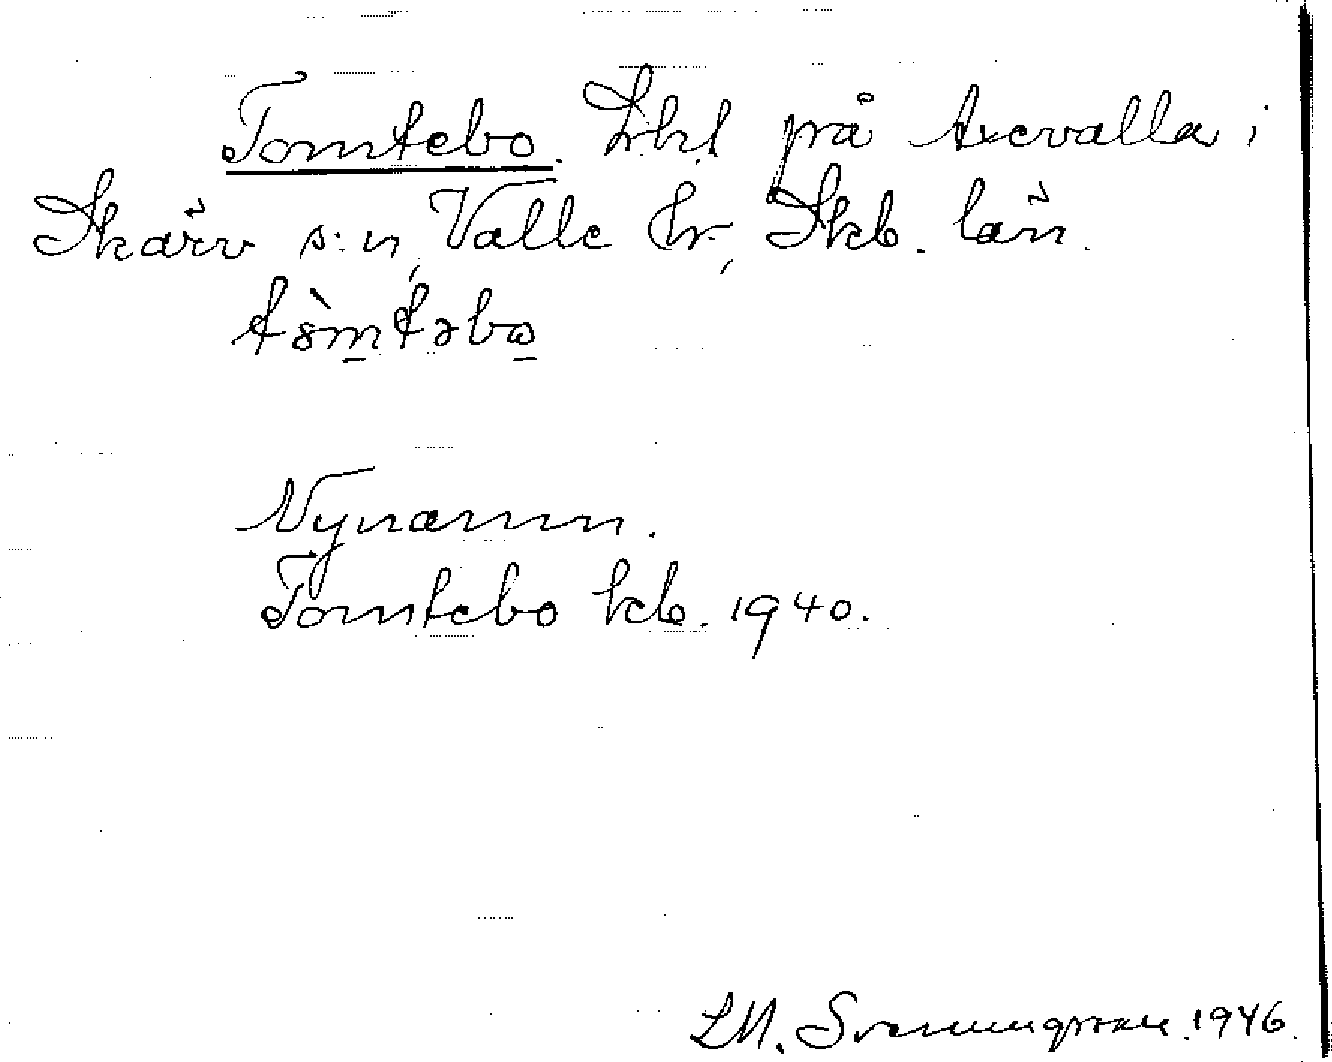 Tomtebo. Lht på Axevalla i
Skärv s:n, Valle hr, Skb. län.
tòmtəbo
Nynamn.
Tomtebo kb. 1940.
S.M. Svenungsson 1946.